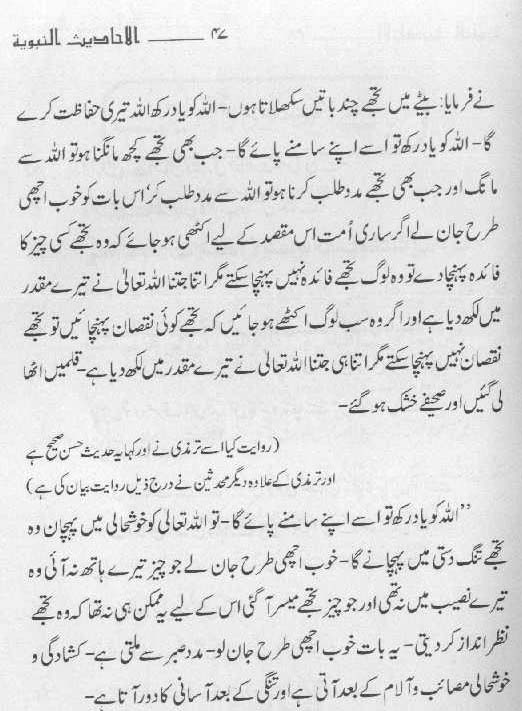 ۴۷ ــــــ الاحادیث النبویة
نے فرمایا: بیٹے میں تجھے چند باتیں سکھلاتا ہوں- اللہ کو یاد رکھ اللہ تیری حفاظت کرے
گا- اللہ کو یاد رکھ تو اسے اپنے سامنے پائے گا- جب بھی تجھے کچھ مانگنا ہو تو اللہ سے
مانگ اور جب بھی تجھے مدد طلب کرنا ہو تو اللہ سے مدد طلب کر' اس بات کو خوب اچھی
طرح جان لے اگر ساری اُمت اس مقصد کے لیے اکٹھی ہو جائے کہ وہ تجھے کسی چیز کا
فائدہ پہنچا دے تو وہ لوگ تجھے فائدہ نہیں پہنچا سکتے مگر اتنا جتنا اللہ تعالیٰ نے تیرے مقدر
میں لکھ دیا ہے اور اگر وہ سب لوگ اکٹھے ہو جائیں کہ تجھے کوئی نقصان پہنچائیں تو تجھے
نقصان نہیں پہنچا سکتے مگر اتنا ہی جتنا اللہ تعالیٰ نے تیرے مقدر میں لکھ دیا ہے- قلمیں اٹھا
لی گئیں اور صحیفے خشک ہو گئے-
(روایت کیا اسے ترمذی نے اور کہا یہ حدیث حسن صحیح ہے
اور ترمذی کے علاوہ دیگر محدثین نے درج ذیل روایت بیان کی ہے)
"اللہ کو یاد رکھ تو اسے اپنے سامنے پائے گا- تو اللہ تعالیٰ کو خوشحالی میں پہچان وہ
تجھے تنگ دستی میں پہچانے گا- خوب اچھی طرح جان لے جو چیز تیرے ہاتھ نہ آئی وہ
تیرے نصیب میں نہ تھی اور جو چیز تجھے میسر آ گئی اس کے لیے یہ ممکن ہی نہ تھا کہ وہ تجھے
نظر انداز کر دیتی- یہ بات خوب اچھی طرح جان لو- مدد صبر سے ملتی ہے- کشادگی و
خوشحالی مصائب و آلام کے بعد آتی ہے اور تنگی کے بعد آسانی کا دور آتا ہے-